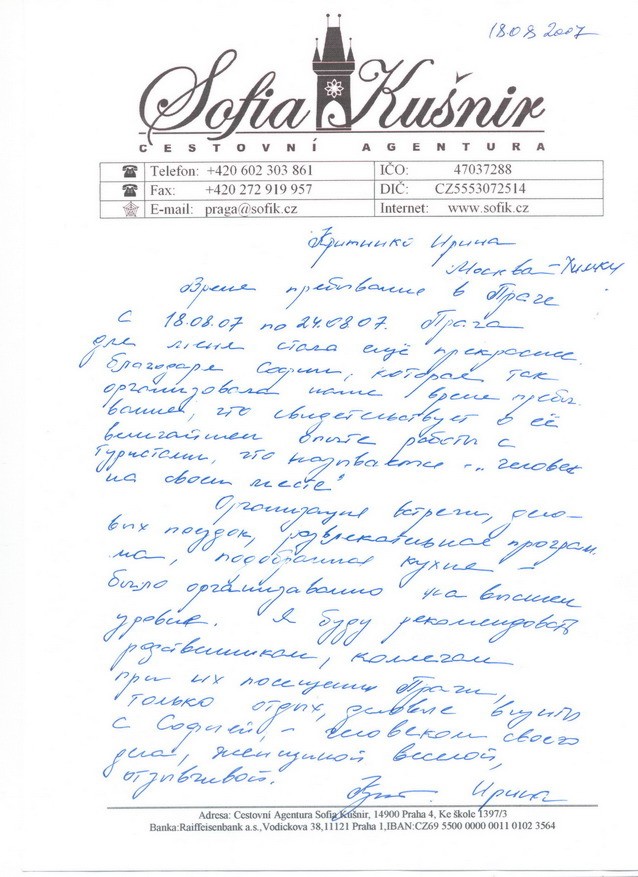 18.08 2007
Sofia Kušnir
CESTOVNÍ AGENTURA
Telefon: +420 602 303 861 IČO: 47037288
Fax: +420 272 919 957 DIČ: CZ5553072514
E-mail: praga@sofik.cz Internet: www.sofik.cz
Ирина
Москва – Химки
Время пребывание в Праге
с 18.08.07 по 24.08.07. Прага
для меня стала ещё прекрасне
благодаря Софии, которая так
организовала наше время пребы-
вание, что свидетельствует о её
величайшем опыте работы с
туристами, что называется „человек
на своем месте"
Организация встречи, дело-
вых поездок, развлекательная програм-
ма, подобранная кухня –
было организованно на высшем
уровне. Я буду рекомендовать
родственникам, коллегам
при их посещении Праги,
только отдых, деловые визиты
с Софией, – человеком своего
дела, женщиной веселой,
отзывчивой.
Ирина
Adresa: Cestovní Agentura Sofia Kušnir, 14900 Praha 4, Ke škole 1397/3
Banka:Raiffeisenbank a.s.,Vodickova 38,11121 Praha 1,IBAN:CZ69 5500 0000 0011 0102 3564